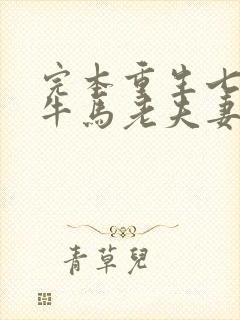 完本重生七
牛馬老夫妻
青草兒